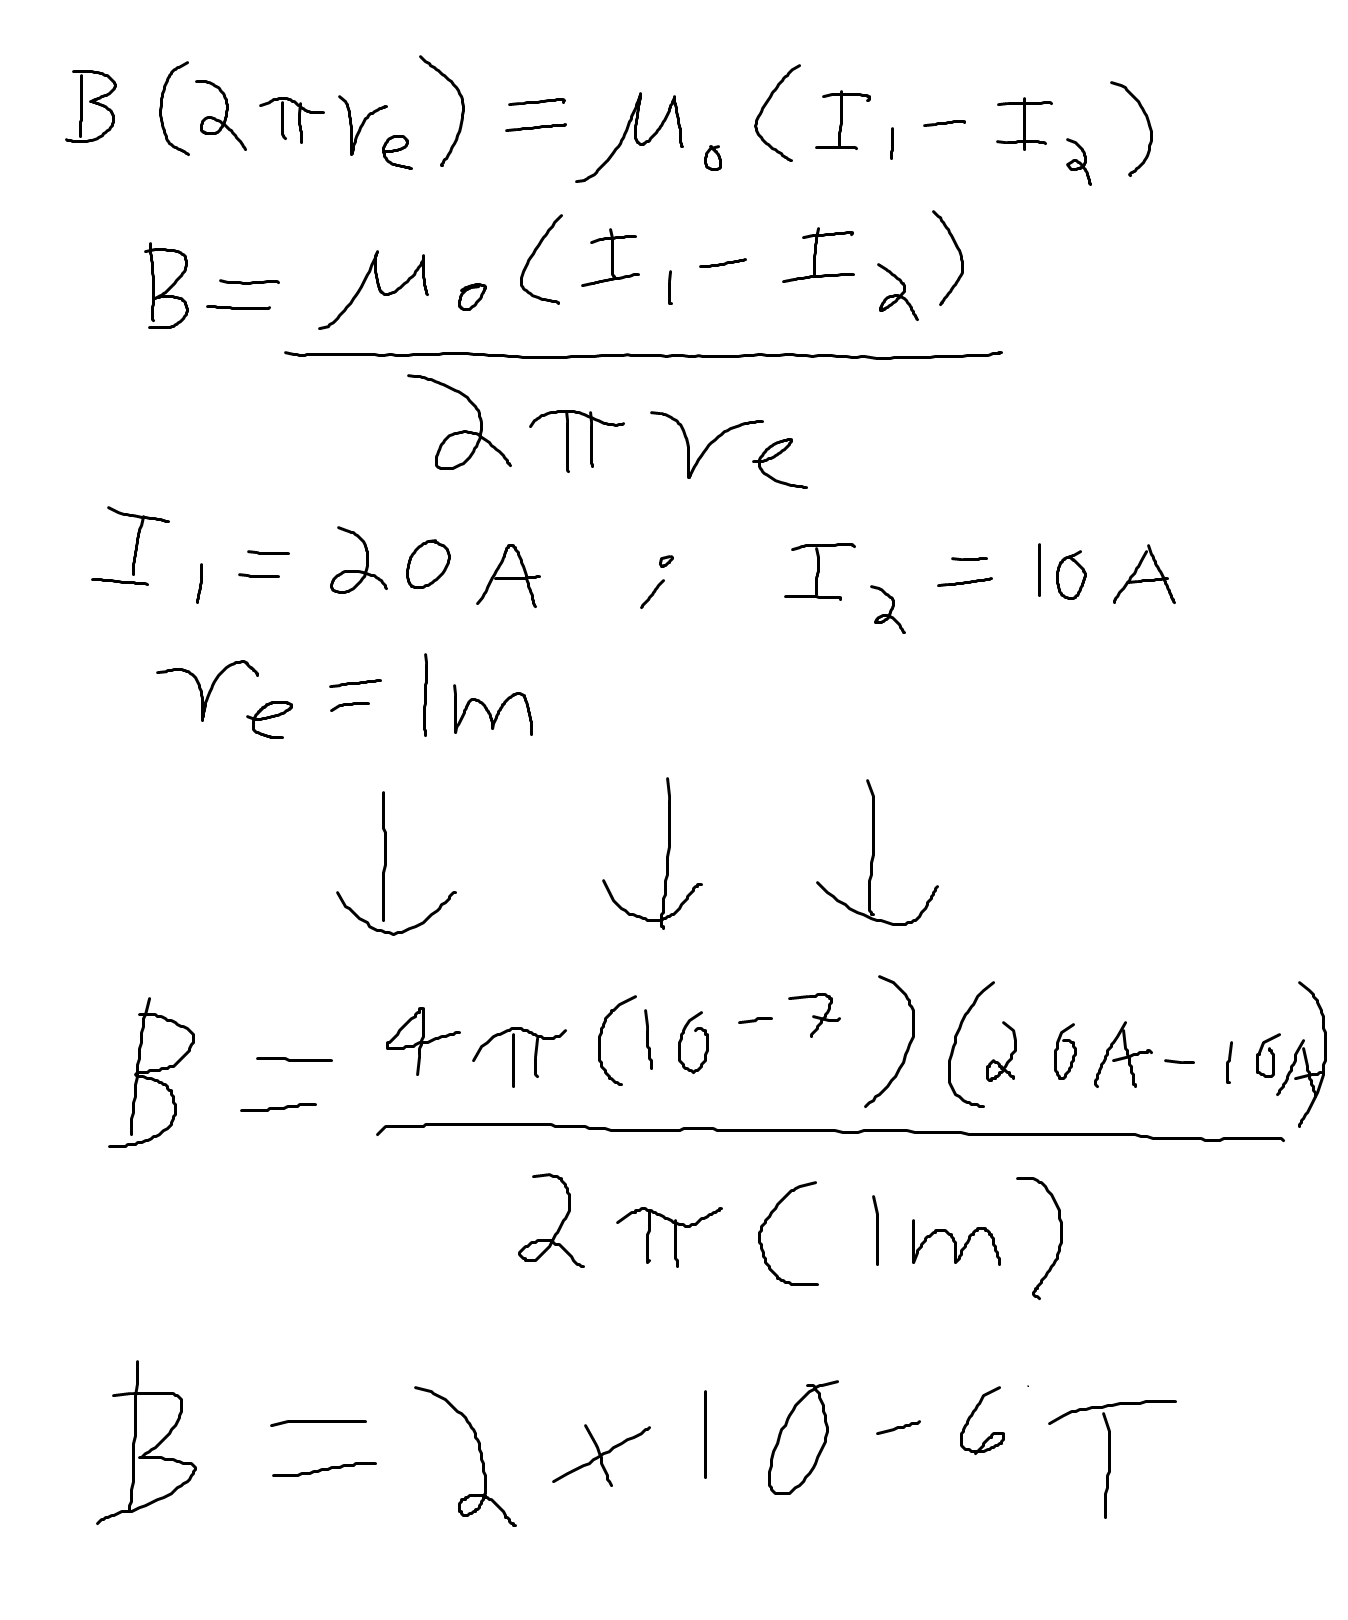 B(2πre) = μ₀(I₁ - I₂)
B = μ₀(I₁ - I₂)
2πre
I₁ = 20A ; I₂ = 10A
re = 1m
↓ ↓ ↓
B = 4π(10⁻⁷)(20A - 10A)
2π(1m)
B = 2 × 10⁻⁶ T